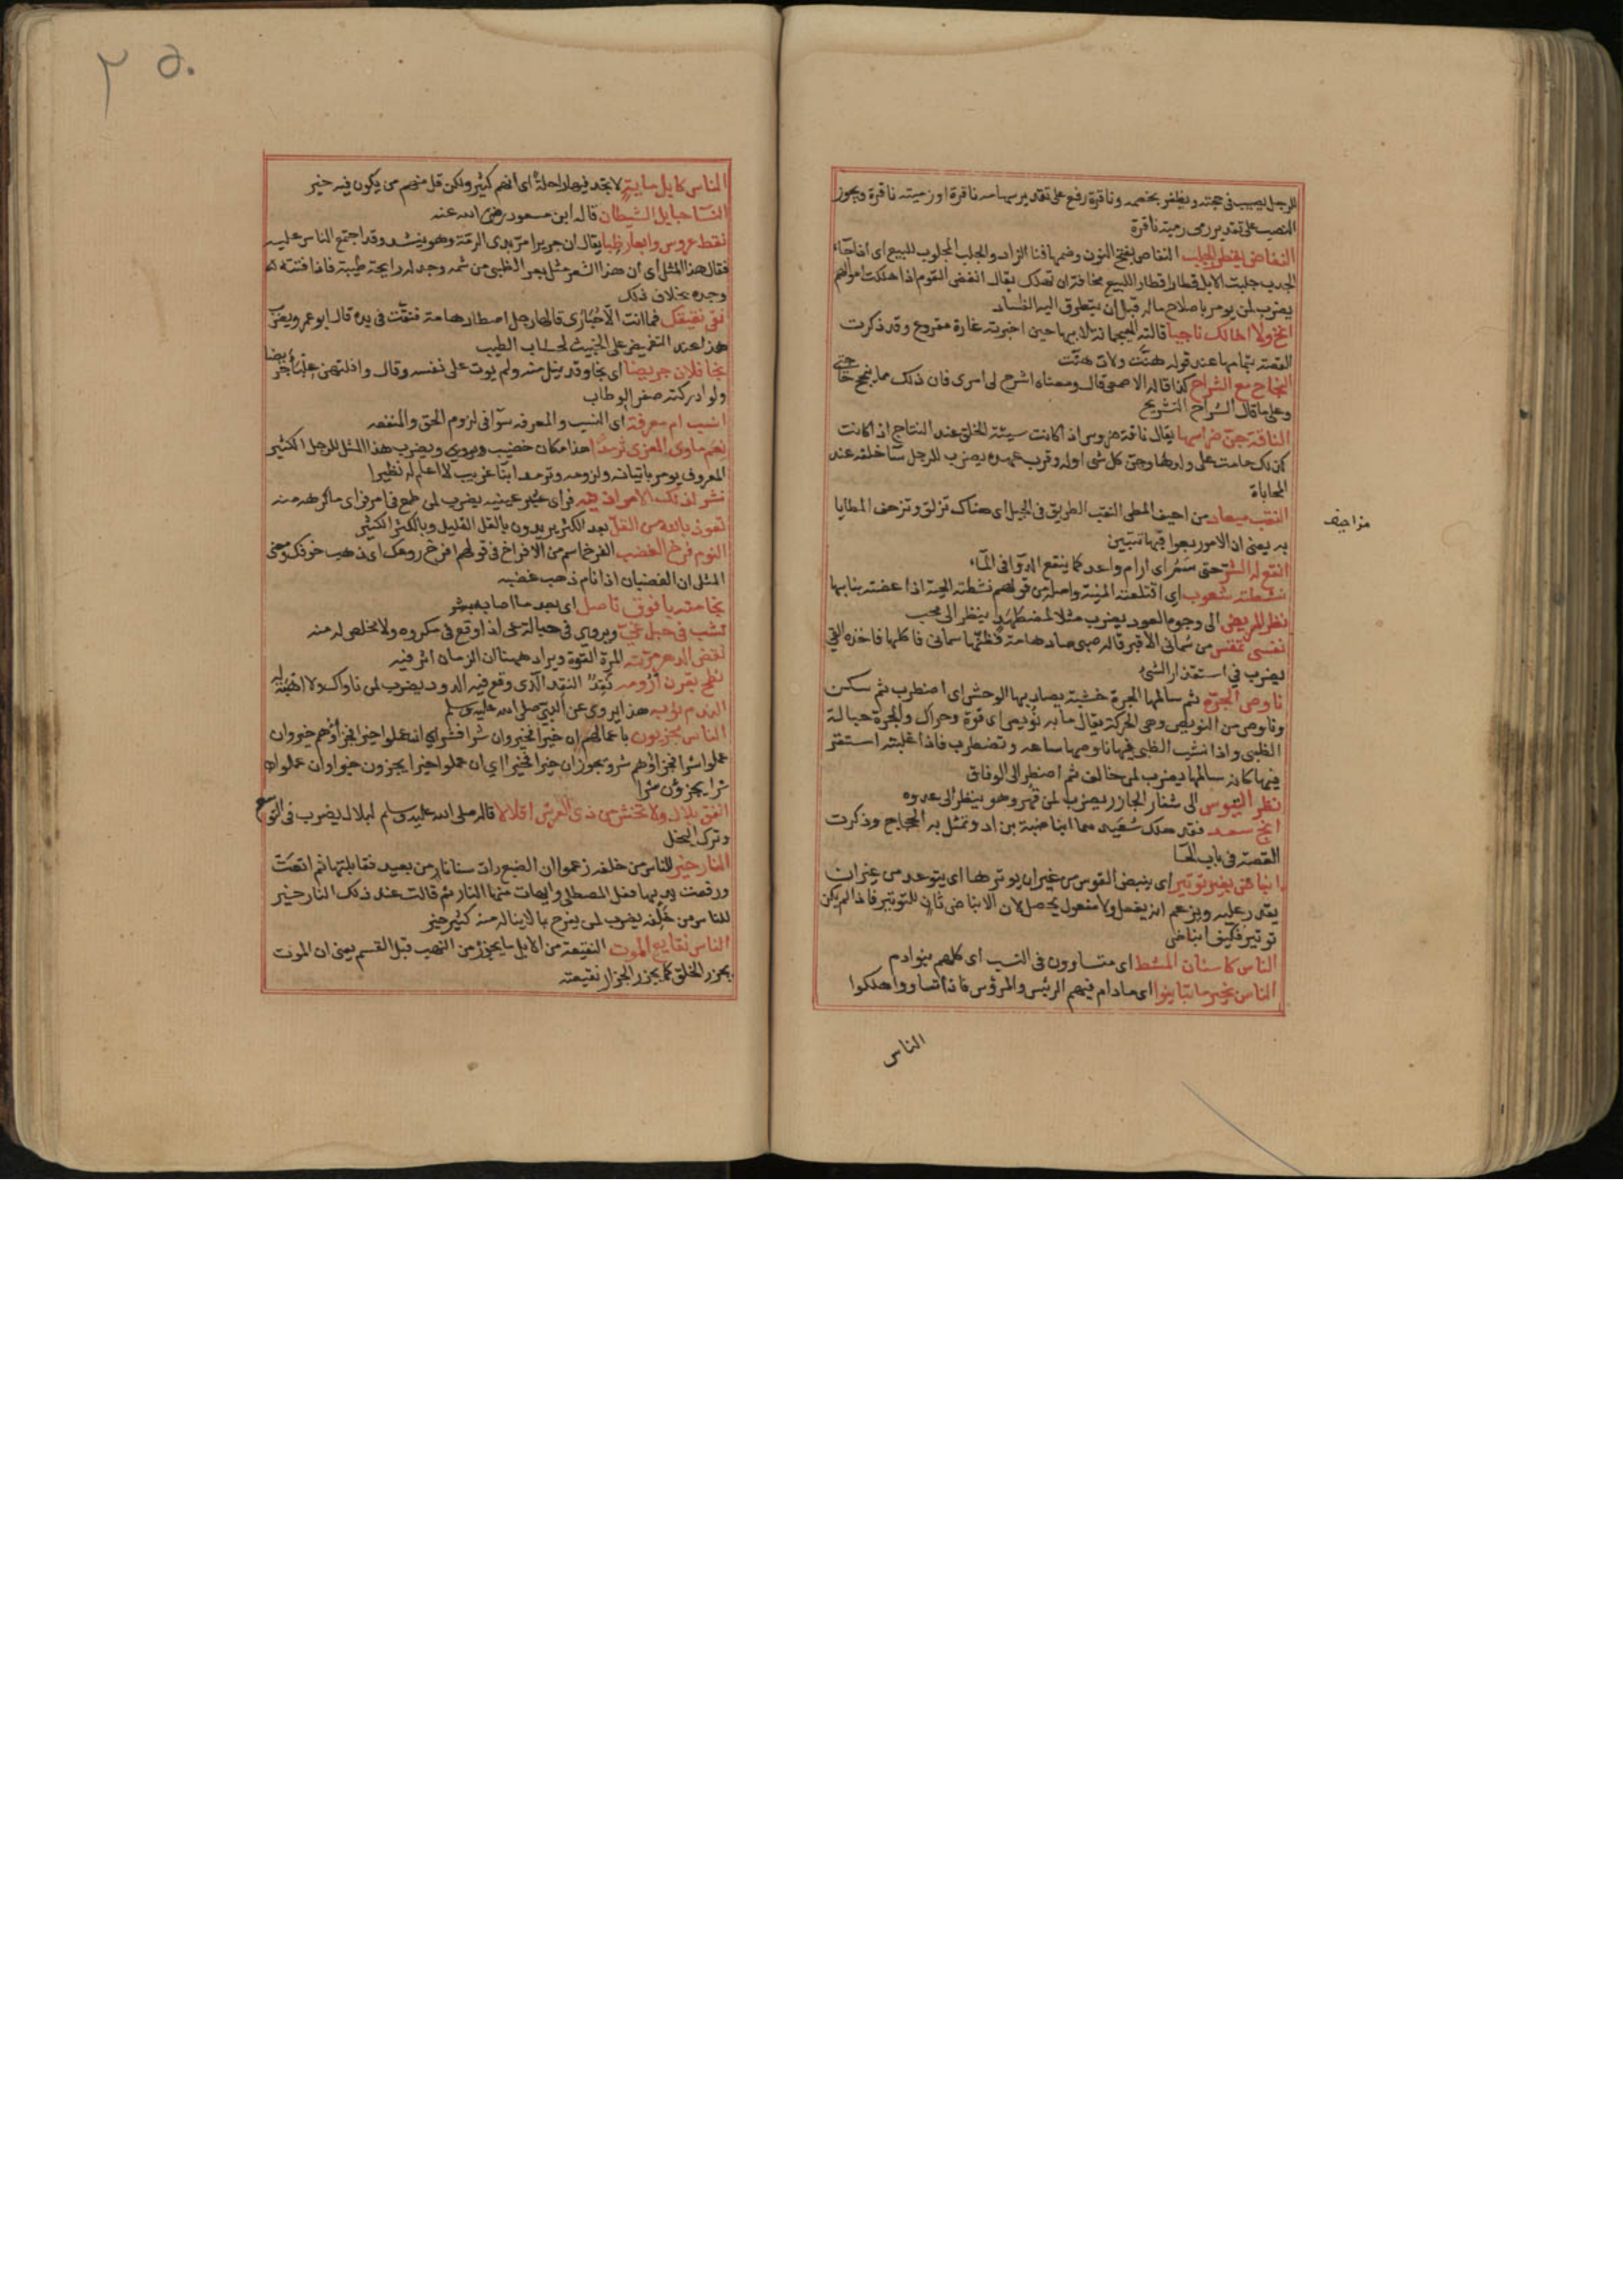 للرجل يصيب في حجته ويظفر بخصمه وناقرة رفع على تقدير سهامه ناقرة او رميته ناقرة ويجوز
النصب على تقدير رمى رمية ناقرة
النفاض يقطر الجلب النفاض بفتح النون وضمها فنا الزاد والجلب المجلوب للبيع اى اذا جاء
الجدب جلبت الابل قطارا قطارا للبيع مخافة ان تهلك يقال انفض القوم اذا هلكت اموالهم
يضرب لمن يومر باصلاح ماله قبل ان يتطرق اليه الفساد
انج ولا اخالك ناجيا قالته الهيجمانة لابيها حين اخبرته غارة مقروع وقد ذكرت
القصة بتمامها عند قوله حنت ولات هنت
النجاح مع الشراح كذا قاله الاصمعى قال ومعناه اشرح لى امرى فان ذلك مما ينجح حاجتى
وعلى ما قال الشراح التشريح
الناقة جن ضراسها يقال ناقة ضروس اذا كانت سيئة الخلق عند النتاج اذا كانت
كذلك حامت على ولدها وجن كل شى اوله وقرب عهده يضرب للرجل ساء خلقه عند
المحاباة
النقب ميعاد من احيف المطى النقب الطريق فى الجبل اى هناك تزلق وتزحف المطايا
مزاحيف
به يعنى ان الامور بعواقبها تتبين
انقع له الشر حتى سئم اى ادام واعد كما ينقع الدواء فى الماء
نشطته شعوب اى اقتلعته المنية واصله من قولهم نشطته الحية اذا عضته بنابها
نظر المريض الى وجوه العود يضرب مثلا لمضطهد ينظر الى محب
نفسى تمقس من سمانى الاقبر قاله صبى صاد هامة فظنها سمانى فاكلها فاخذه القى
يضرب في استقذار الشئ
ناوص الجرة ثم سالمها الجرة خشبة يصاد بها الوحش اى اضطرب ثم سكن
وناوص من النويص وهى الحركة يقال ما به نويص اى قوة وحراك والجرة حبالة
الظبى واذا نشب الظبى فيها ناوصها ساعة وتضطرب فاذا غلبته استقر
فيها كانه سالمها يضرب لمن خالف ثم اضطر الى الوفاق
نظر التيوس الى شفار الجازر يضرب لمن قهر وهو ينظر الى عدوه
انج سعد فقد هلك سعيد هما ابنا ضبة بن اد وتمثل به الحجاج وذكرت
القصة فى باب الحا
انباض بغير توتير اى ينبض القوس من غير ان يوترها اى يتوعد من غير ان
يقدر عليه ويزعم انه يفعل ولا مفعول يحصل لان الانباض ثان للتوتير فاذا لم يكن
توتير فكيف انباض
الناس كاسنان المشط اى متساوون فى النسب اى كلهم بنو ادم
الناس بخير ما تباينوا اى ما دام فيهم الرئيس والمرؤس فاذا تساووا هلكوا
الناس
٢٥٠
الناس كابل ماية لا تجد فيها راحلة اى انهم كثير ولكن قل منهم من يكون فيه خير
النسا حبايل الشيطان قاله ابن مسعود رضى الله عنه
نقط عروس وابعار ظبا يقال ان جريرا مر بذى الرمة وهو ينشد وقد اجتمع الناس عليه
فقال هذا المثل اى ان هذا الشعر مثل بعر الظبى من شمه وجد له رايحة طيبة فاذا فتته
وجده بخلاف ذلك
نقى نقيقك فما انت الا حبارى قالها رجل اصطاد هامة فنقت فى يده قال ابو عمرو يضرب
هذا عند التغميض على الخبيث لحساب الطيب
نجا فلان جريضا اى نجا وقد نيل منه ولم يوت على نفسه وقال وافلتهن علباء جريضا
ولو ادركته صفر الوطاب
انسب ام معرفة اى النسب والمعرفة سوآ فى لزوم الحق والمنفعه
نعم ماوى المعزى ثرمدا هذا مكان خصيب ويروى ويضرب هذا المثل للرجل الكثير
المعروف يومر باتيانه ولزومه وثرمدا بنا غريب لا اعلم له نظيرا
نشر لذلك الامر اذنيه فراى عثير عينيه يضرب لمن طمع فى امر فراى ما كرهه منه
نعوذ بالله من القل بعد الكثر يريدون بالقل القليل وبالكثر الكثير
النوم فرخ الغضب الفرخ اسم من الافراخ فى قولهم افرخ روعك اى ذهب خوفك ومعنى
المثل ان الغضبان اذا نام ذهب غضبه
نجا منه بافوق ناصل اى بعد ما اصابه بشر
نشب فى حبل غى ويروى فى حبالة غى اذا وقع فى مكروه ولا مخلص له منه
نقض الدهر مرته المرة القوة ويراد ههنا ان الزمان اثر فيه
نطح بقرن ارومه نقد النقد الذى وقع فيه الدود يضرب لمن ناواك ولا اهبة له
الندم توبة هذا يروى عن النبى صلى الله عليه وسلم
الناس مجزيون باعمالهم ان خيرا فخير وان شرا فشر اى ان عملوا خيرا فجزاؤهم خير وان
عملوا شرا فجزاؤهم شر ويجوز ان خيرا فخيرا اى ان عملوا خيرا يجزون خيرا وان عملوا
شرا يجزون شرا
انفق بلال ولا تخش من ذى العرش اقلالا قاله صلى الله عليه وسلم لبلال يضرب فى التوسع
وترك البخل
النار خير للناس من حلقة زعموا ان الضبع رات سنا نار من بعيد فقابلتها ثم اقعت
ورفعت يديها فعل المصطلى وابهات منها النار ثم قالت عند ذلك النار خير
للناس من حلقه يضرب لمن يفرح بما لا يناله منه كثير خير
الناس نقايع الموت النقيعة من الابل ما يجزر من النهب قبل القسم يعنى ان الموت
يجزر الخلق كما يجزر الجزار نقيعته